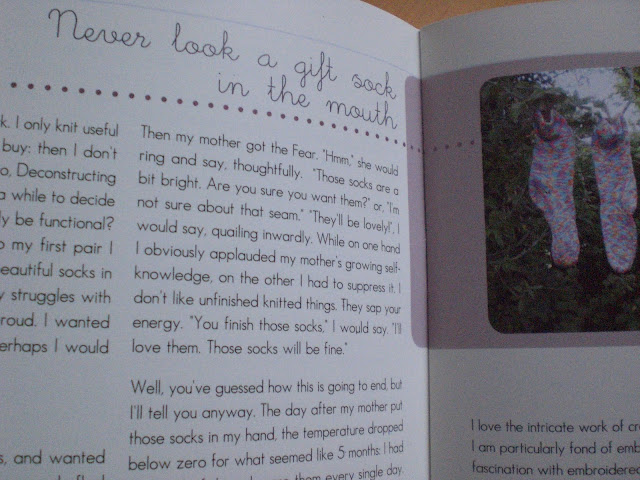 Never look a gift sock
in the mouth
k. I only knit useful
buy: then I don't
o, Deconstructing
a while to decide
ly be functional?
o my first pair I
beautiful socks in
y struggles with
roud. I wanted
erhaps I would
s, and wanted
Then my mother got the Fear. "Hmm," she would
ring and say, thoughtfully. "Those socks are a
bit bright. Are you sure you want them?" or, "I'm
not sure about that seam." "They'll be lovely!", I
would say, quailing inwardly. While on one hand
I obviously applauded my mother's growing self-
knowledge, on the other I had to suppress it. I
don't like unfinished knitted things. They sap your
energy. "You finish those socks," I would say. "I'll
love them. Those socks will be fine."
Well, you've guessed how this is going to end, but
I'll tell you anyway. The day after my mother put
those socks in my hand, the temperature dropped
below zero for what seemed like 5 months: I had
them every single day.
I love the intricate work of cr
I am particularly fond of emb
fascination with embroidered